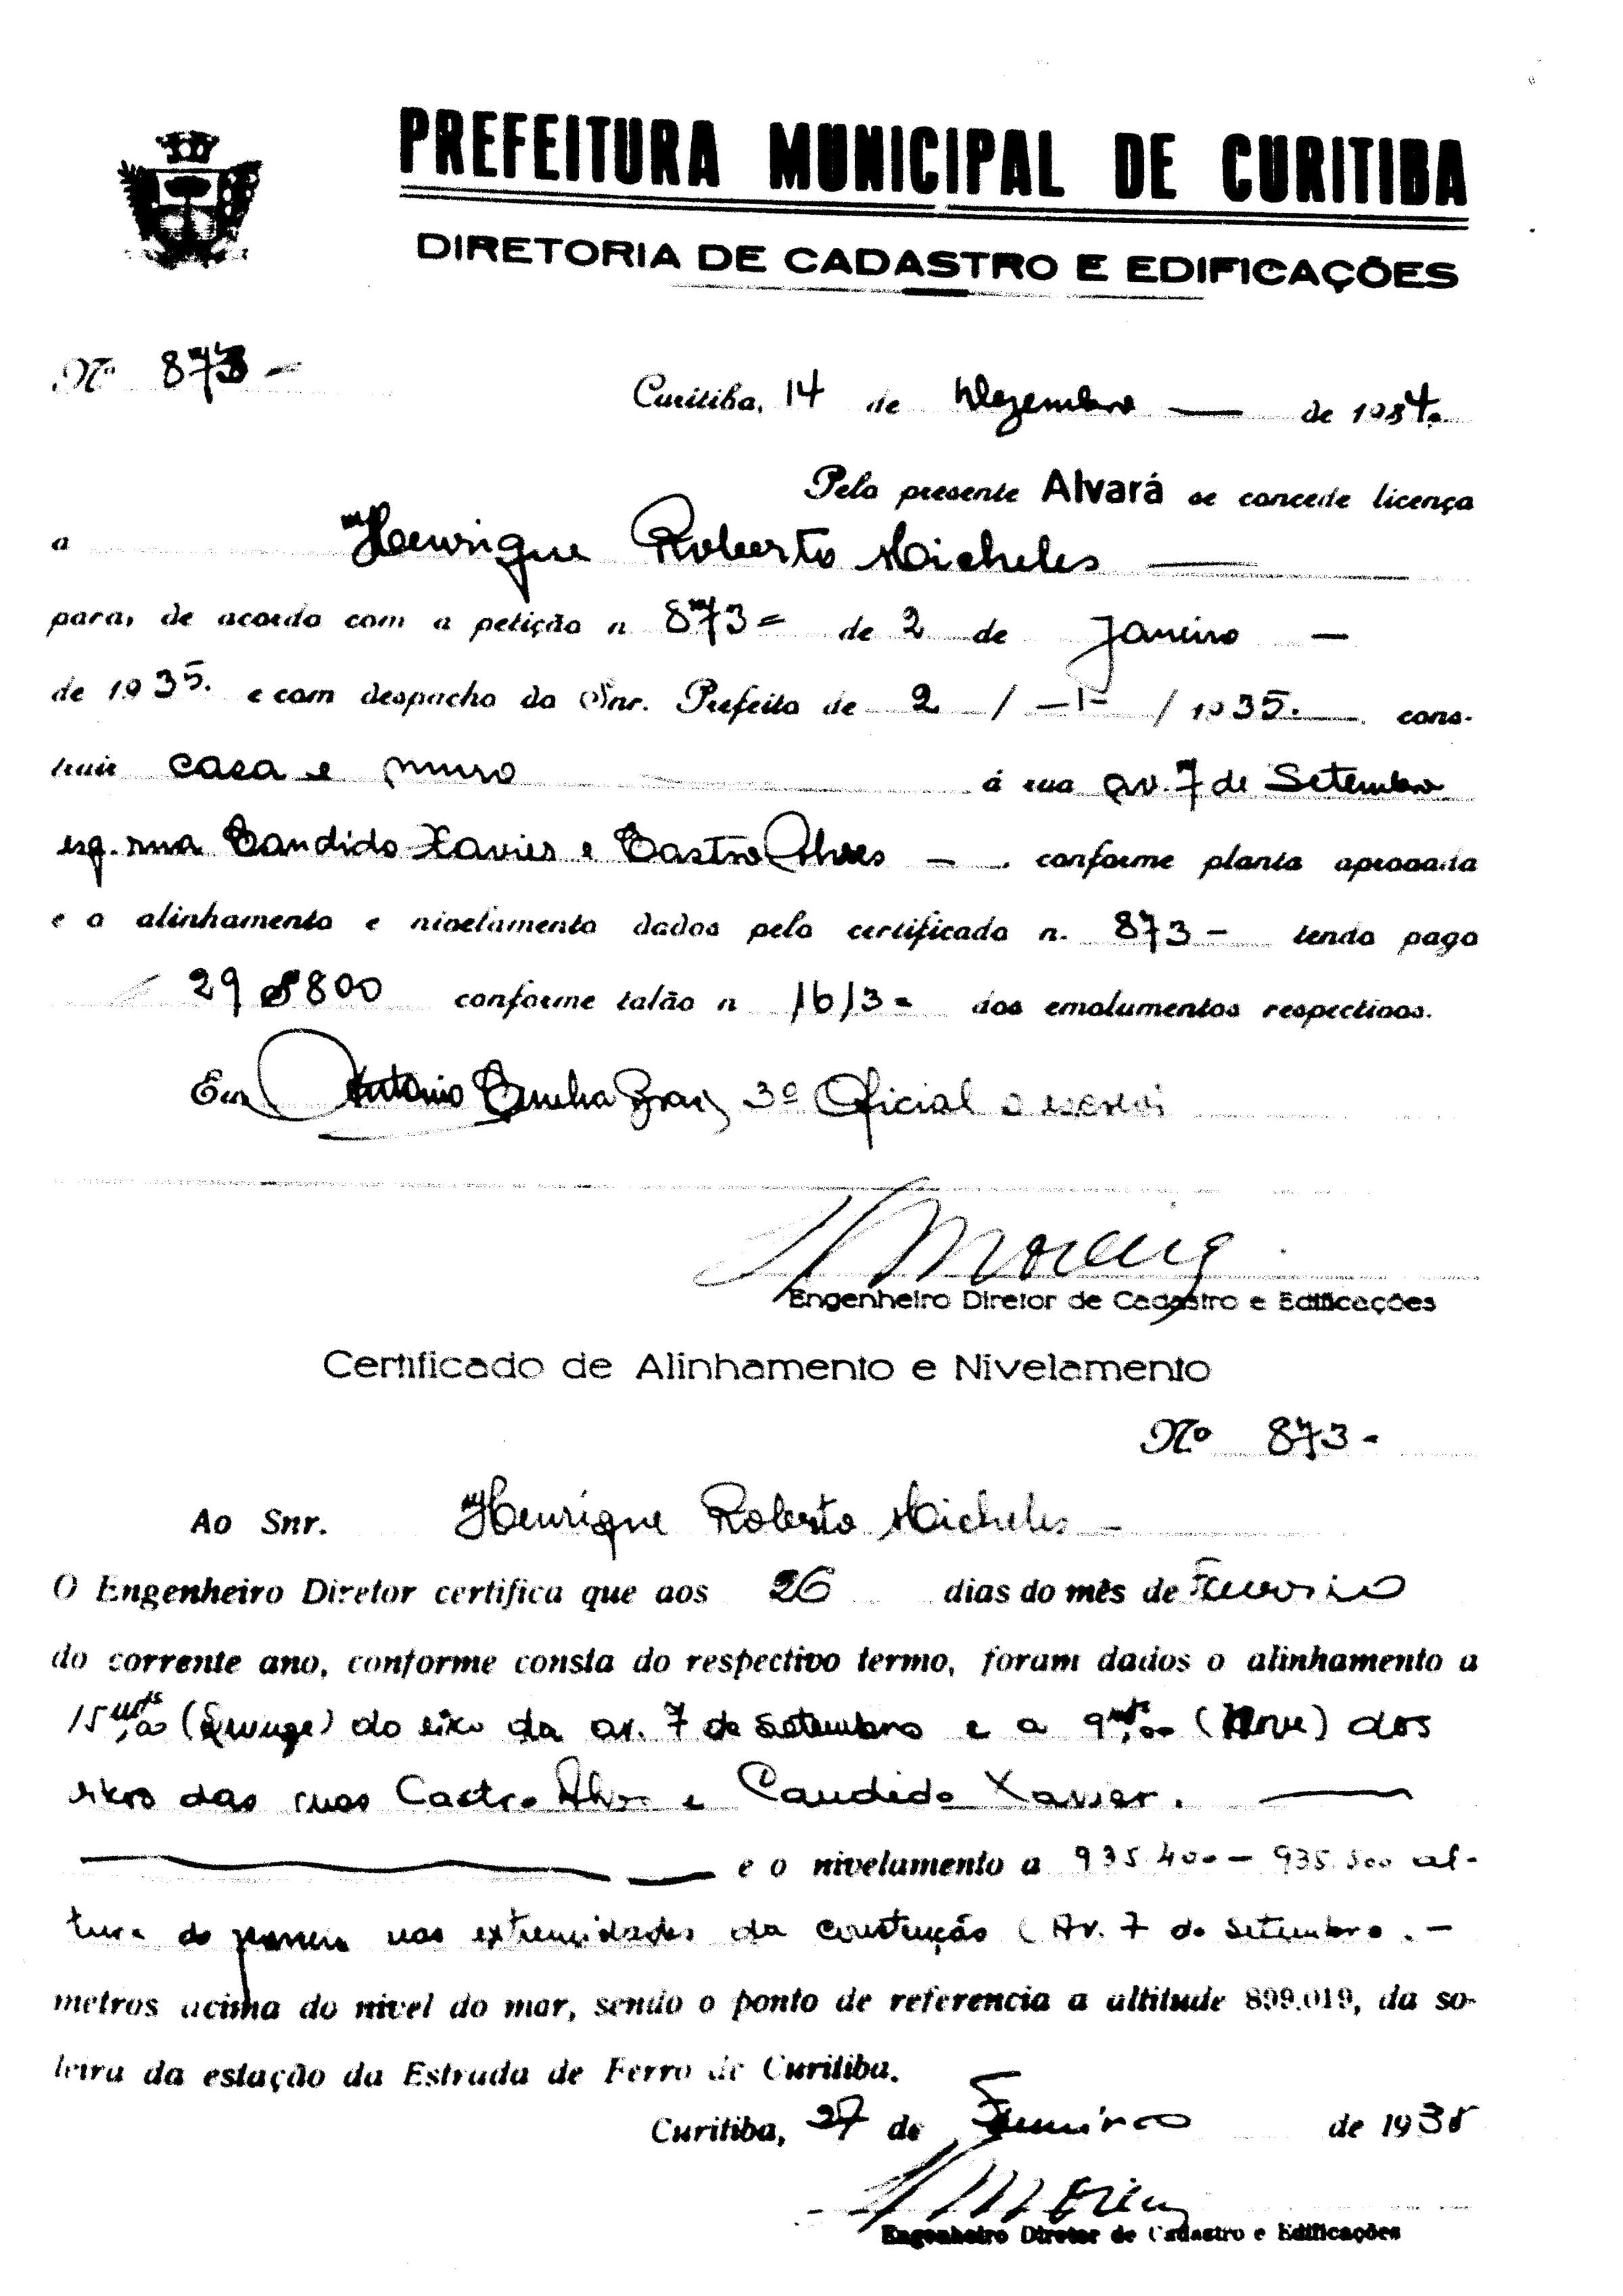 PREFEITURA MUNICIPAL DE CURITIBA
DIRETORIA DE CADASTRO E EDIFICAÇÕES
Nº 873 -
Curitiba, 14 de Dezembro — de 1934.
Pelo presente Alvará se concede licença
a Henrique Roberto Micheles —
para, de acordo com a petição n 873 = de 2 de Janeiro —
de 1935. e com despacho do Snr. Prefeito de 2 / - 1 - / 1935. cons-
truir casa e muro á rua av. 7 de Setembro
esq. rua Candido Xavier e Castro Alves — . conforme planta aprovada
e o alinhamento e nivelamento dados pelo certificado n. 873 - tendo pago
29$800 conforme talão n 1613 = dos emolumentos respectivos.
Eu Antonio Cunha 3º Oficial o escrevi
Moreira
Engenheiro Diretor de Cadastro e Edificações
Certificado de Alinhamento e Nivelamento
Nº 873 -
Ao Snr. Henrique Roberto Micheles —
O Engenheiro Diretor certifica que aos 26 dias do mês de Fevereiro
do corrente ano, conforme consta do respectivo termo, foram dados o alinhamento a
15mts,00 (Quinze) do eixo da av. 7 de Setembro e a 9mts,00 (Nove) dos
eixos das ruas Castro Alves e Candido Xavier. —
— e o nivelamento a 935.400 — 935.500 al-
tura do passeio nas extremidades da construção (Av. 7 de Setembro. —
metros acima do nivel do mar, sendo o ponto de referencia a altitude 899.019, da so-
leira da estação da Estrada de Ferro de Curitiba.
Curitiba, 27 de Fevereiro de 1935
Moreira
Engenheiro Diretor de Cadastro e Edificações